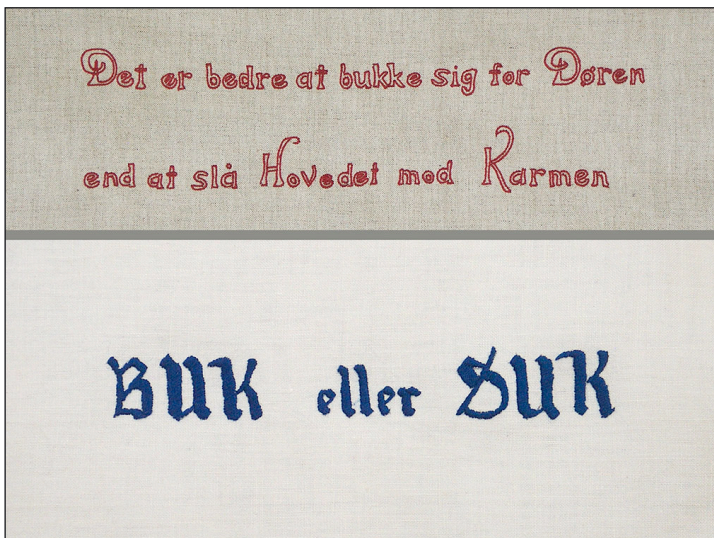 Det er bedre at bukke sig for Døren
end at slå Hovedet mod Karmen
BUK eller SUK